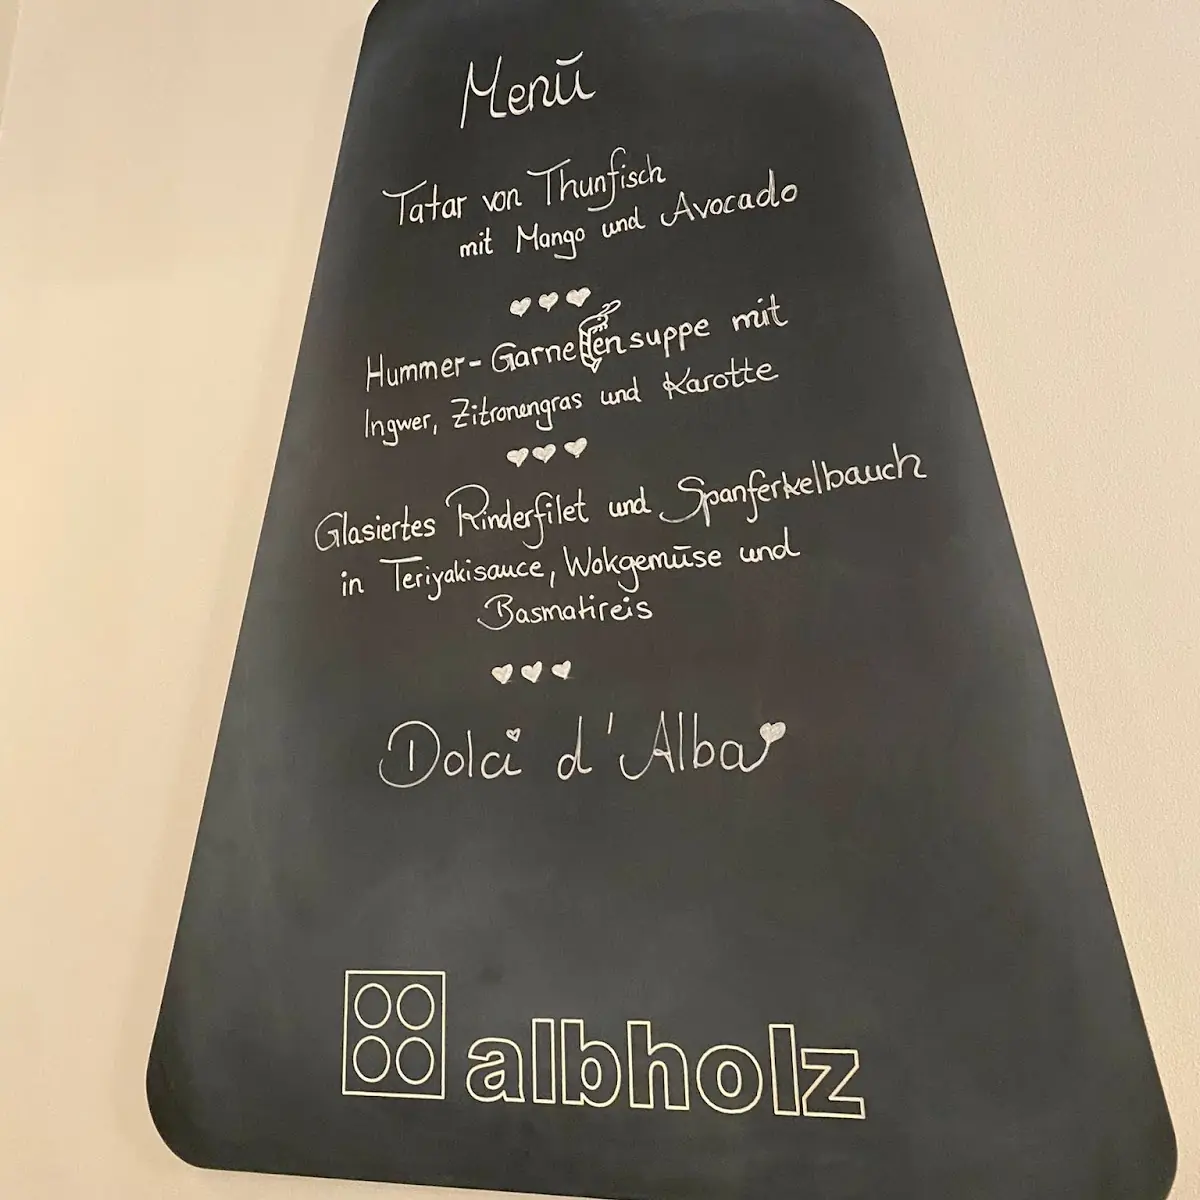 Menü
Tatar von Thunfisch
mit Mango und Avocado
Hummer-Garnelensuppe mit
Ingwer, Zitronengras und Karotte
Glasiertes Rinderfilet und Spanferkelbauch
in Teriyakisauce, Wokgemüse und
Basmatireis
Dolci d'Alba
albholz